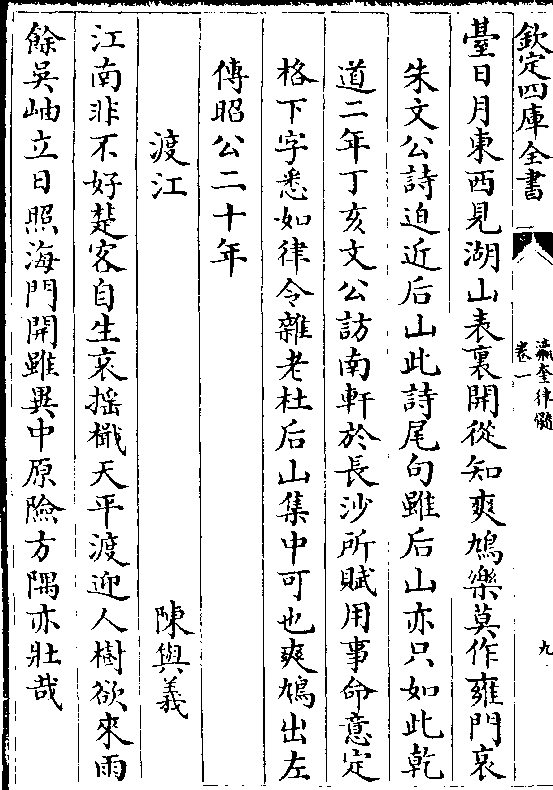 欽定四庫全書
瀛奎律髓
卷一
九
臺日月東西見湖山表裏開從知爽鳩樂莫作雍門哀
朱文公詩迫近后山此詩尾句雖后山亦只如此乾
道二年丁亥文公訪南軒於長沙所賦用事命意定
格下字悉如律令雜老杜后山集中可也爽鳩出左
傳昭公二十年
渡江
陳與義
江南非不好楚客自生哀揺檝天平渡迎人樹欲來雨
餘吳岫立日照海門開雖異中原險方隅亦壯哉